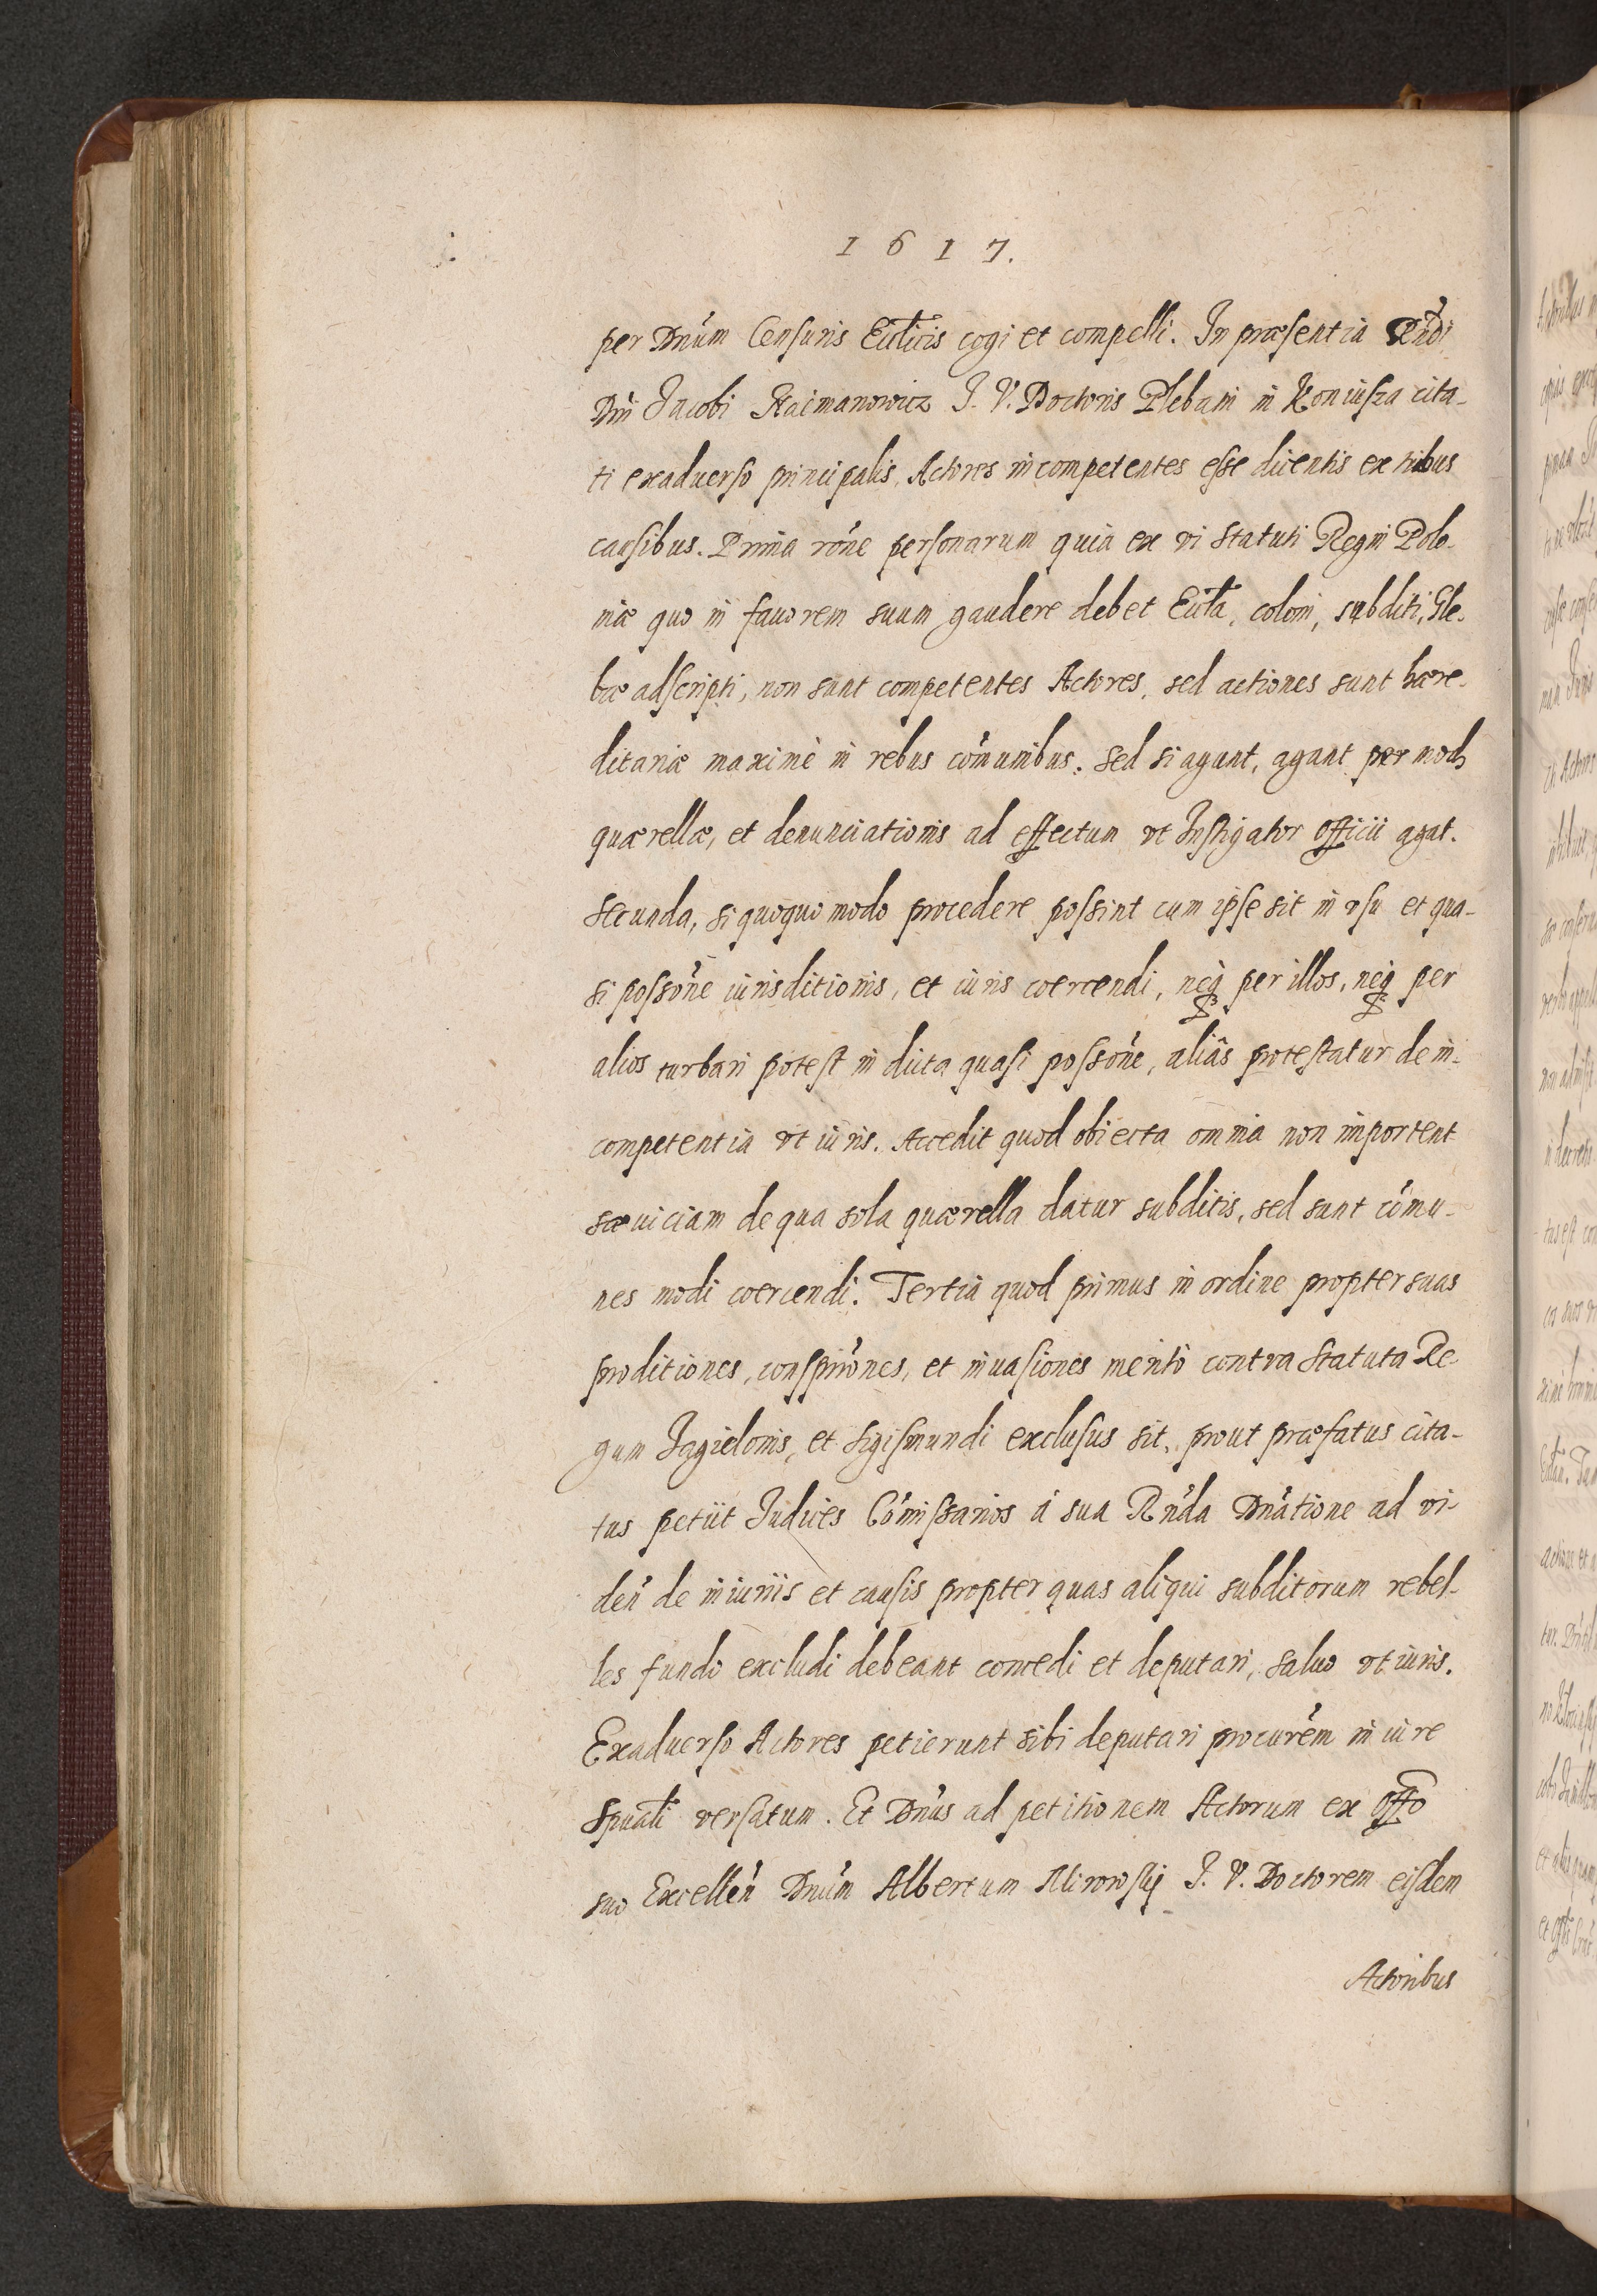 1617.
per Dnum Censuris Ecclticis cogi et compelli. In præsentia Rndi
Dni Jacobi Kaimanowicz J. V. Doctoris Plebani in Koniusza cita-
ti exaduerso principalis, Actores incompetentes esse dicentis ex tribus
causibus. Prima rone personarum quia ex vi Statuti Regni Polo-
niæ quo in fauorem suum gaudere debet Eccta, coloni, subditi, Gle-
bæ adscripti, non sunt competentes Actores, sed actiones sunt hære-
ditariæ maximè in rebus comunibus. Sed si agunt, agant per mod
quærellæ, et denunciationis ad effectum vt Instigator officii agat.
Secunda, si quoquo modo procedere possint cum ipse sit in vsu et qua-
si possone iurisditionis, et iuris coercendi, neq per illos, neq per
alios turbari potest in dicta quasi possone, aliâs protestatur de in-
competentia vt iuris. Accedit quod obiecta omnia non important
sæuiciam de qua sola quærella datur subditis, sed sunt comu-
nes modi coercendi. Tertia quod primus in ordine propter suas
proditiones, conspirones, et inuasiones meritò contra Statuta Re-
gum Jagielonis, et Sigismundi exclusus sit, prout præfatus cita-
tus petiit Judices Comissarios á sua Rnda Dnatione ad vi-
den de iniuriis et causis propter quas aliqui subditorum rebel-
les fundo excludi debeant concedi et deputari, saluo vt iuris.
Exaduerso Actores petierunt sibi deputari procurem in iure
Spuali versatum. Et Dnus ad petitionem Actorum ex offo
suo Excellen Dnum Albertum Mirowskj J. V. Doctorem eisdem
Actoribus